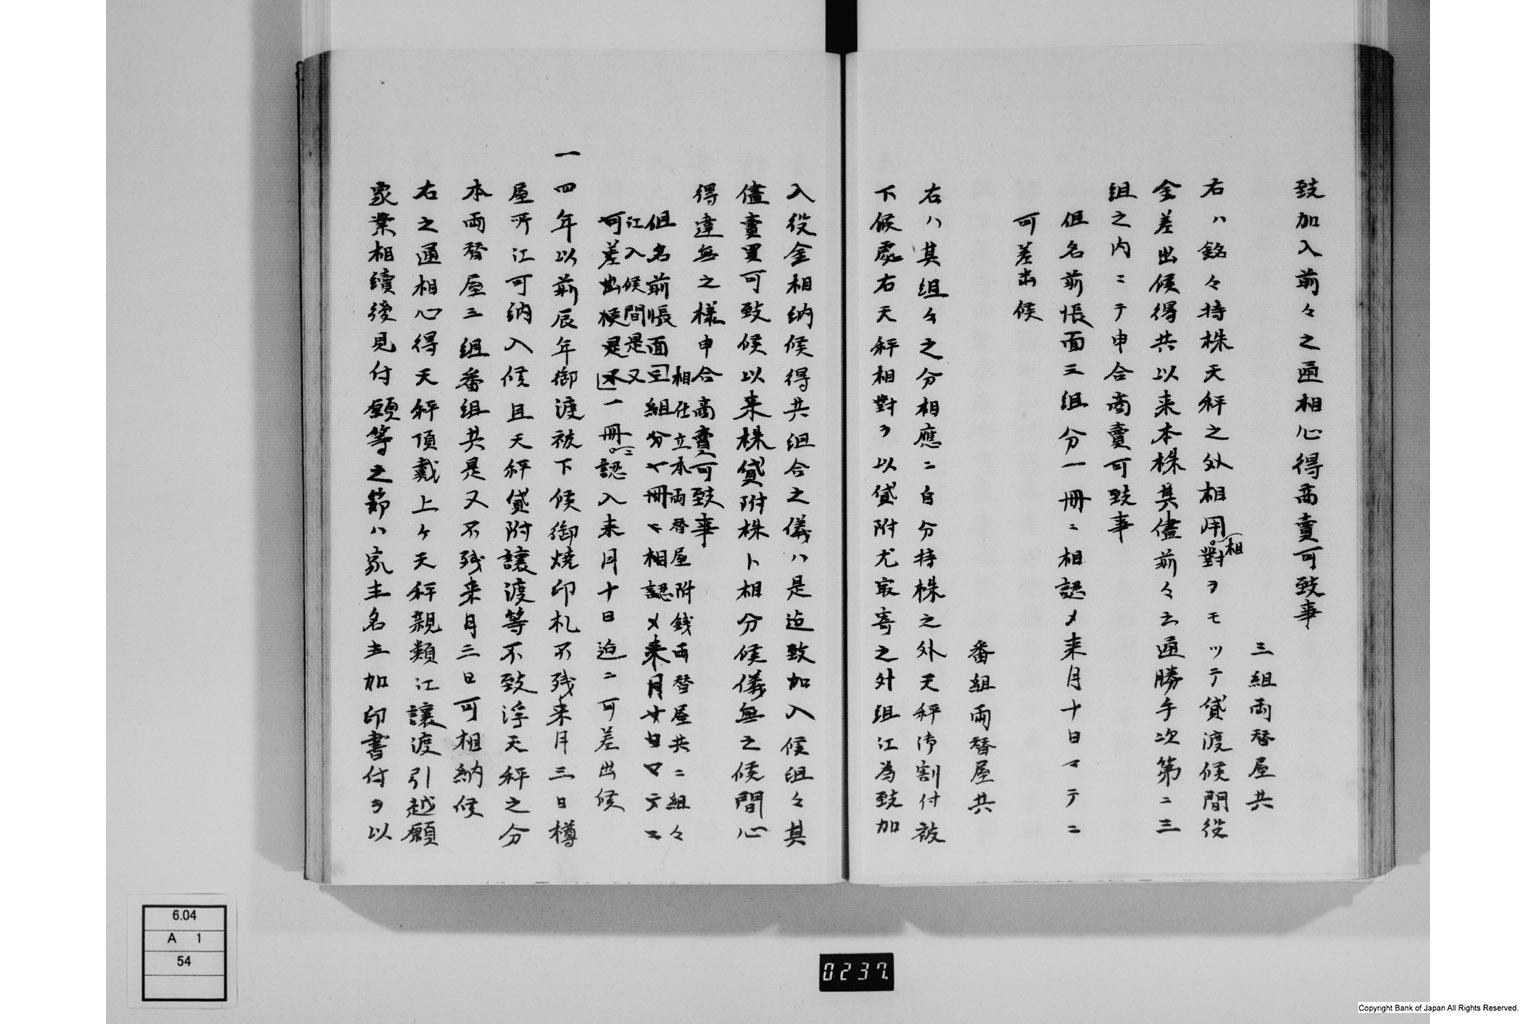 致加入前々之通相心得商賣可致事
三組両替屋共
右ハ銘々持株天秤之外相用対ヲモッテ貸渡候間役
相
金差出候得共以来本株其儘前々之通勝手次第ニ三
組之内ニテ申合商賣可致事
但名前帳面三組分一冊ニ相認メ来月十日マテニ
可差出候
番組両替屋共
右ハ其組々之分相應ニ自分持株之外天秤御割付被
下候處右天秤相對ヲ以貸附尤最寄之外組江為致加
入役金相納候得共組合之儀ハ是迄致加入候組々其
儘賣買可致候以来株貸附株ト相分候儀無之候間心
得違無之様申合商賣可致事
相仕立本両替屋附銭両替屋共ニ組々
但名前帳面三組分一冊ニ相認メ来月廿日マテニ
江入候間是又
可差出候是又一冊ニ認入来月十日迄ニ可差出候
一四年以前辰年御渡被下候御焼印札不残来月三日樽
屋所江可納入候且天秤貸附譲渡等不致浮天秤之分
本両替屋三組番組共是又不残来月三日可相納候
右之通相心得天秤頂戴上ケ天秤親類江譲渡引越願
家業相續後見付願等之節ハ家主名主加印書付ヲ以
6.04
A 1
54
0237
Copyright Bank of Japan All Rights Reserved.